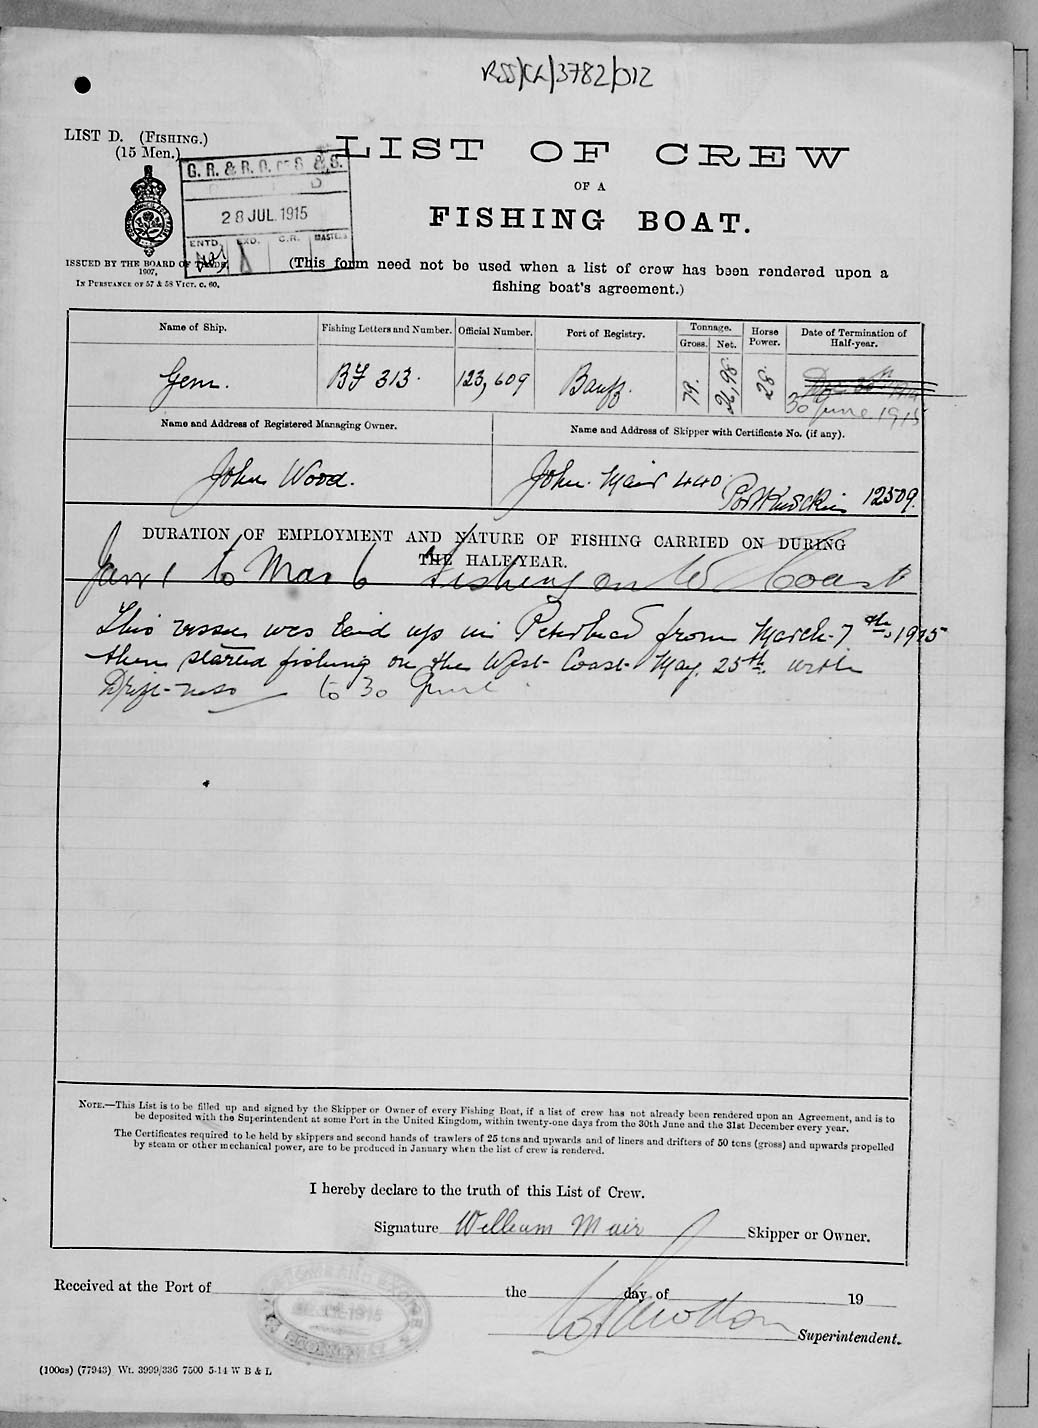 RSS/CL/3782/012
LIST D. (FISHING.)
(15 Men.)
G. R. & R. O. OF S. & S.
28 JUL 1915
ENTD. EXD. C.R. MASTERS
ISSUED BY THE BOARD OF TRADE,
1907,
IN PURSUANCE OF 57 & 58 VICT. C. 60.
LIST OF CREW
OF A
FISHING BOAT.
(This form need not be used when a list of crew has been rendered upon a
fishing boat's agreement.)
Name of Ship.
Fishing Letters and Number.
Official Number.
Port of Registry.
Tonnage.
Gross. Net.
Horse Power.
Date of Termination of Half-year.
Gem.
BF 313.
123,609
Banff.
79.
26,98
28.
30 June 1915
Name and Address of Registered Managing Owner.
Name and Address of Skipper with Certificate No. (if any).
John Wood.
John Mair 440 Portknockie 12509.
DURATION OF EMPLOYMENT AND NATURE OF FISHING CARRIED ON DURING
THE HALF-YEAR.
Jany 1 to Mar 6 Fishing on W Coast
This vessel was laid up in Peterhead from March 7th 1915
then started fishing on the West Coast May 25th with
Drift-nets to 30 June
NOTE.—This List is to be filled up and signed by the Skipper or Owner of every Fishing Boat, if a list of crew has not already been rendered upon an Agreement, and is to
be deposited with the Superintendent at some Port in the United Kingdom, within twenty-one days from the 30th June and the 31st December every year.
The Certificates required to be held by skippers and second hands of trawlers of 25 tons and upwards and of liners and drifters of 50 tons (gross) and upwards propelled
by steam or other mechanical power, are to be produced in January when the list of crew is rendered.
I hereby declare to the truth of this List of Crew.
Signature William Mair Skipper or Owner.
Received at the Port of the day of 19
Superintendent.
(100gs) (77943) Wt. 3999/336 7500 5-14 W B & L